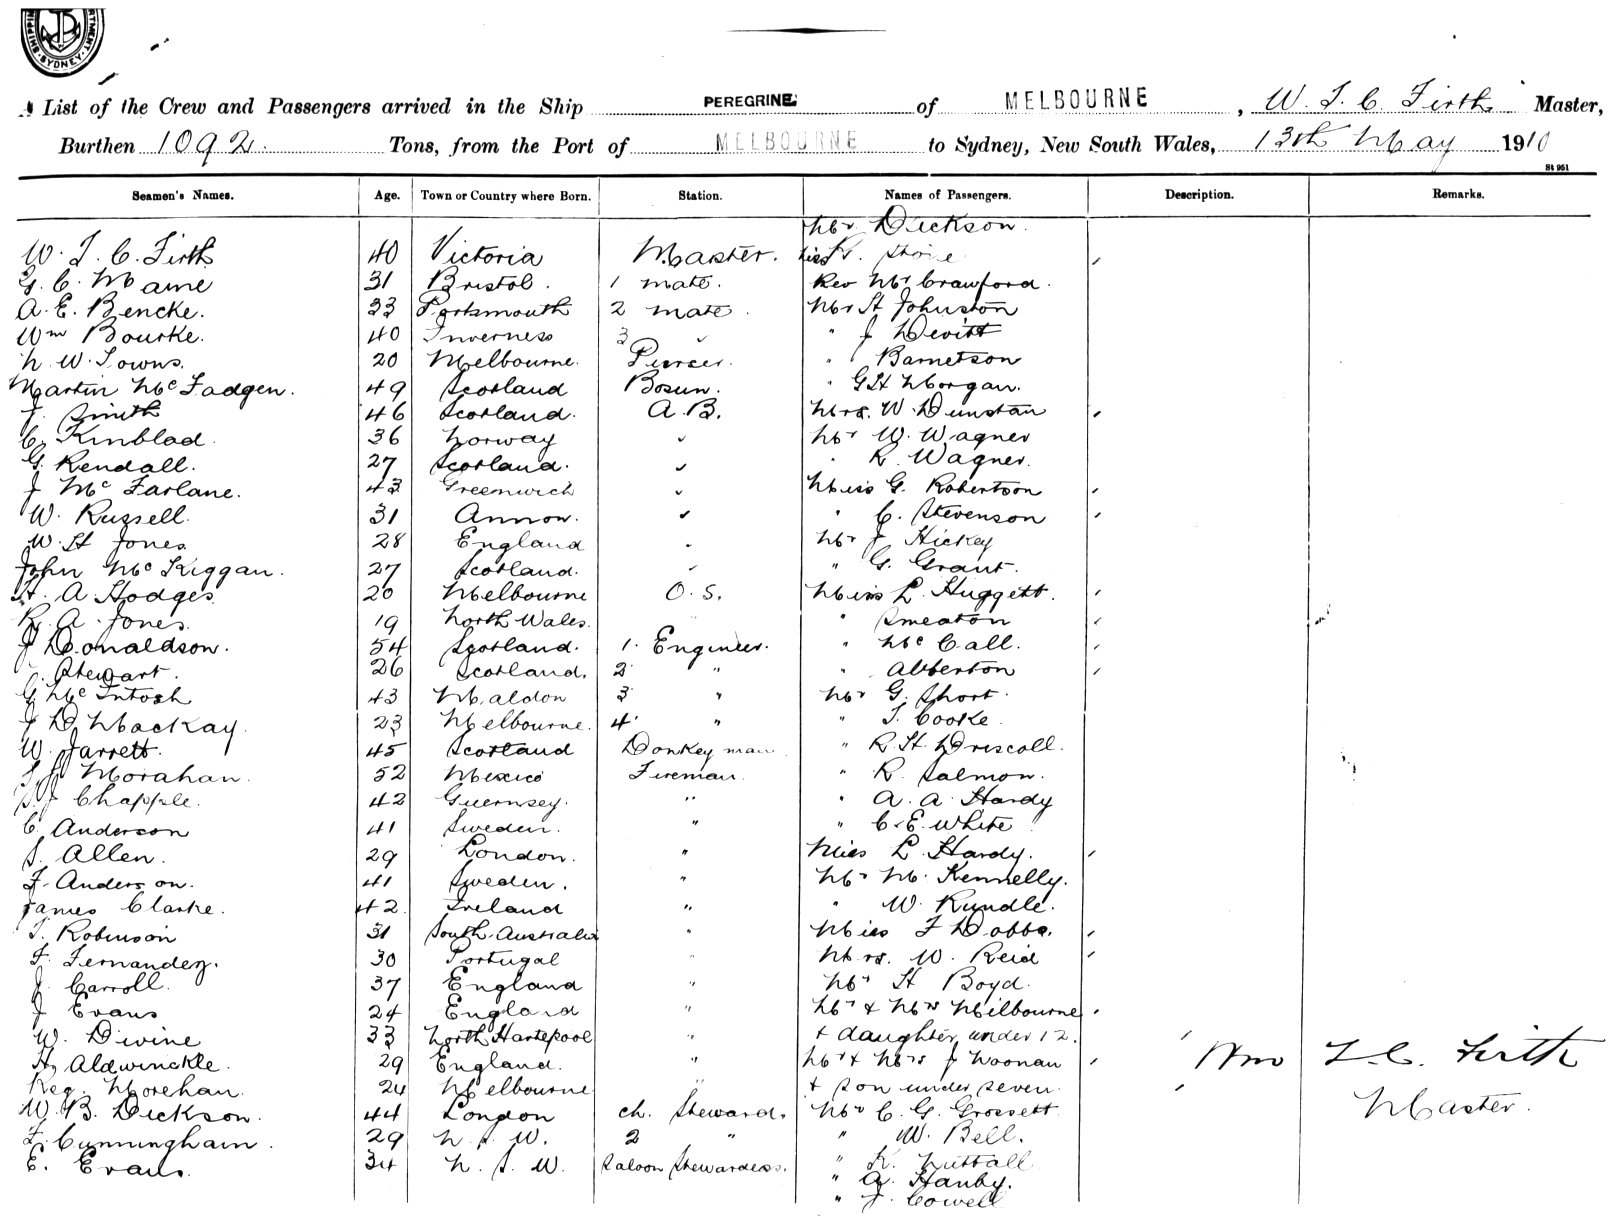 SYDNEY
List of the Crew and Passengers arrived in the Ship PEREGRINE of MELBOURNE, W. T. C. Firth Master,
Burthen 1092 Tons, from the Port of MELBOURNE to Sydney, New South Wales, 13th May 1910
St 951
Seamen's Names. Age. Town or Country where Born. Station. Names of Passengers. Description. Remarks.
Mr Dickson
W. T. C. Firth 40 Victoria Master.
G. C. Maine 31 Bristol. 1 mate. Rev Mr Crawford.
A. E. Bencke. 33 Portsmouth 2 mate Mr H Johnston
Wm Bourke. 40 Inverness 3 " " J Devitt
N. W. Towns. 20 Melbourne. Purser. " Barnetson
Martin McFadgen. 49 Scotland Bosun. " G H Morgan.
J. Smith 46 Scotland. A. B. Mrs. W. Dunstan
C. Kinblad. 36 Norway " Mr W. Wagner
G. Kendall. 27 Scotland. " " R. Wagner.
J McFarlane. 43 Greenwich " Miss G. Robertson
W. Russell. 31 Annan. " " C. Stevenson
W. H Jones 28 England " Mr J Hickey
John McKiggan. 27 Scotland. " " G. Grant.
H. A Hodges 20 Melbourne O. S. Miss L. Huggett.
R. A. Jones. 19 North Wales. " Smeaton
J Donaldson. 54 Scotland. 1. Engineer. " McCall.
Stewart. 26 Scotland. 2 " " Abberton
G. McIntosh 43 Maldon 3 " Mr G. Short.
J D Mackay. 23 Melbourne. 4 " " T. Cooke.
W. Jarrett. 45 Scotland Donkeyman " R. H. Driscoll.
Morahan. 52 Mexico Fireman. " R. Salmon.
J Chapple. 42 Guernsey. " " A. A. Hardy
C. Anderson 41 Sweden. " " C. E. White
S. Allen. 29 London. " Miss L. Hardy.
F. Anderson. 41 Sweden. " Mr M. Kennelly.
James Clarke. 42 Ireland " " W. Rundle.
T. Robinson 31 South Australia " Miss F Dobbs.
F. Fernandez. 30 Portugal " Mrs. W. Reid
J. Carroll. 37 England " Mr H Boyd.
J Evans 24 England " Mr & Mrs Milbourne
W. Divine 33 North Hartlepool " + daughter under 12.
H. Aldwinckle. 29 England. " Mr & Mrs J Noonan Wm T. C. Firth
Reg. Morehan. 24 Melbourne " + son under seven. Master.
W. B. Dickson. 44 London ch. Steward. Mr C. G. Grossett
F. Cunningham. 29 N. S. W. 2 " " W. Bell.
E. Evans. 34 N. S. W. Saloon Stewardess. " K. Nuttall
" A. Hanby.
" J. Cowell